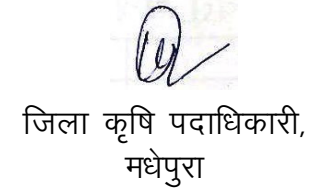 जिला कृषि पदाधिकारी,
मधेपुरा